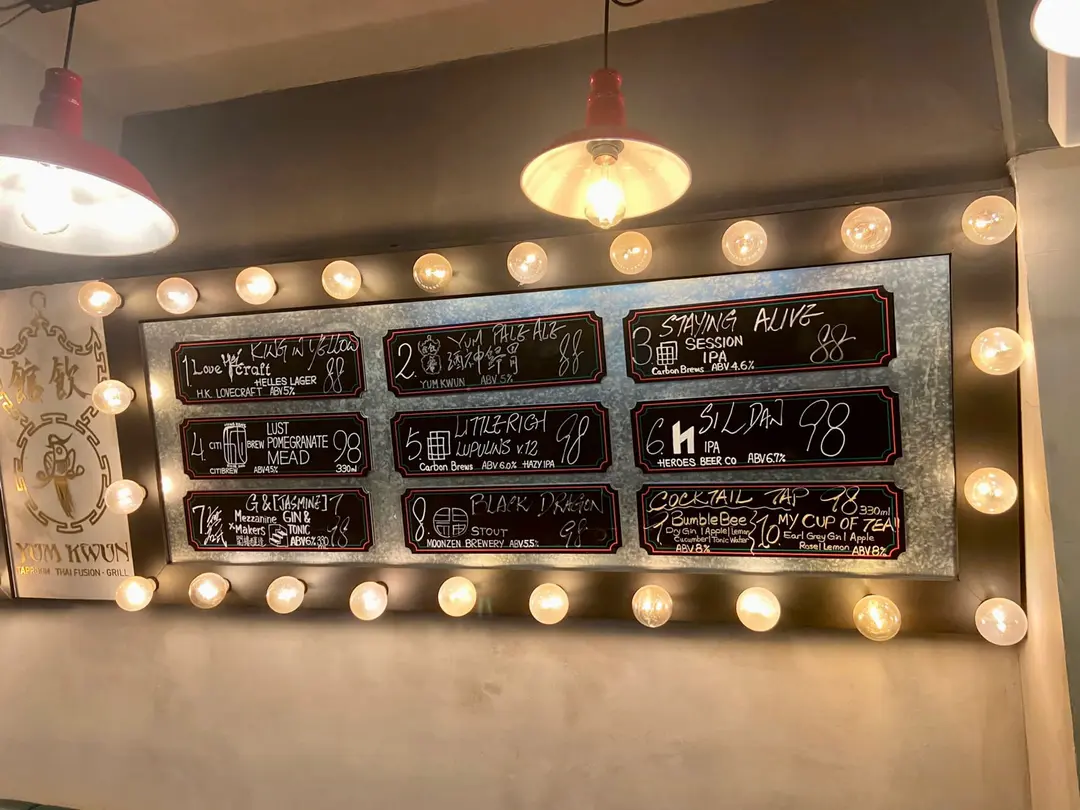 館飲
YUM KWUN
TAPROOM · THAI FUSION · GRILL
1. Love Craft KING IN YELLOW
HELLES LAGER 88
H.K. LOVECRAFT ABV 5%
2. YUM PALE ALE
88
YUM KWUN ABV 5%
3 STAYING ALIVE
SESSION
IPA 88
Carbon Brews ABV 4.6%
4. CITI BREW LUST
POMEGRANATE
MEAD 98
CITIBREW ABV 4.5% 330ml
5. LITTLE RICH
LUPULINS v.12 98
Carbon Brews ABV 6.0% HAZY IPA
6. SIL DAN 98
IPA
HEROES BEER CO ABV 6.7%
7 G & [JASMINE] T
Mezzanine GIN &
x Makers TONIC 98
ABV 6% 330
8 BLACK DRAGON
STOUT 98
MOONZEN BREWERY ABV 5.5%
COCKTAIL TAP 98 330ml
9 BumbleBee
Dry Gin | Apple | Lemon
Cucumber | Tonic Water
ABV 8%
10 MY CUP OF TEA!
Earl Grey Gin | Apple
Rose | Lemon ABV 8%